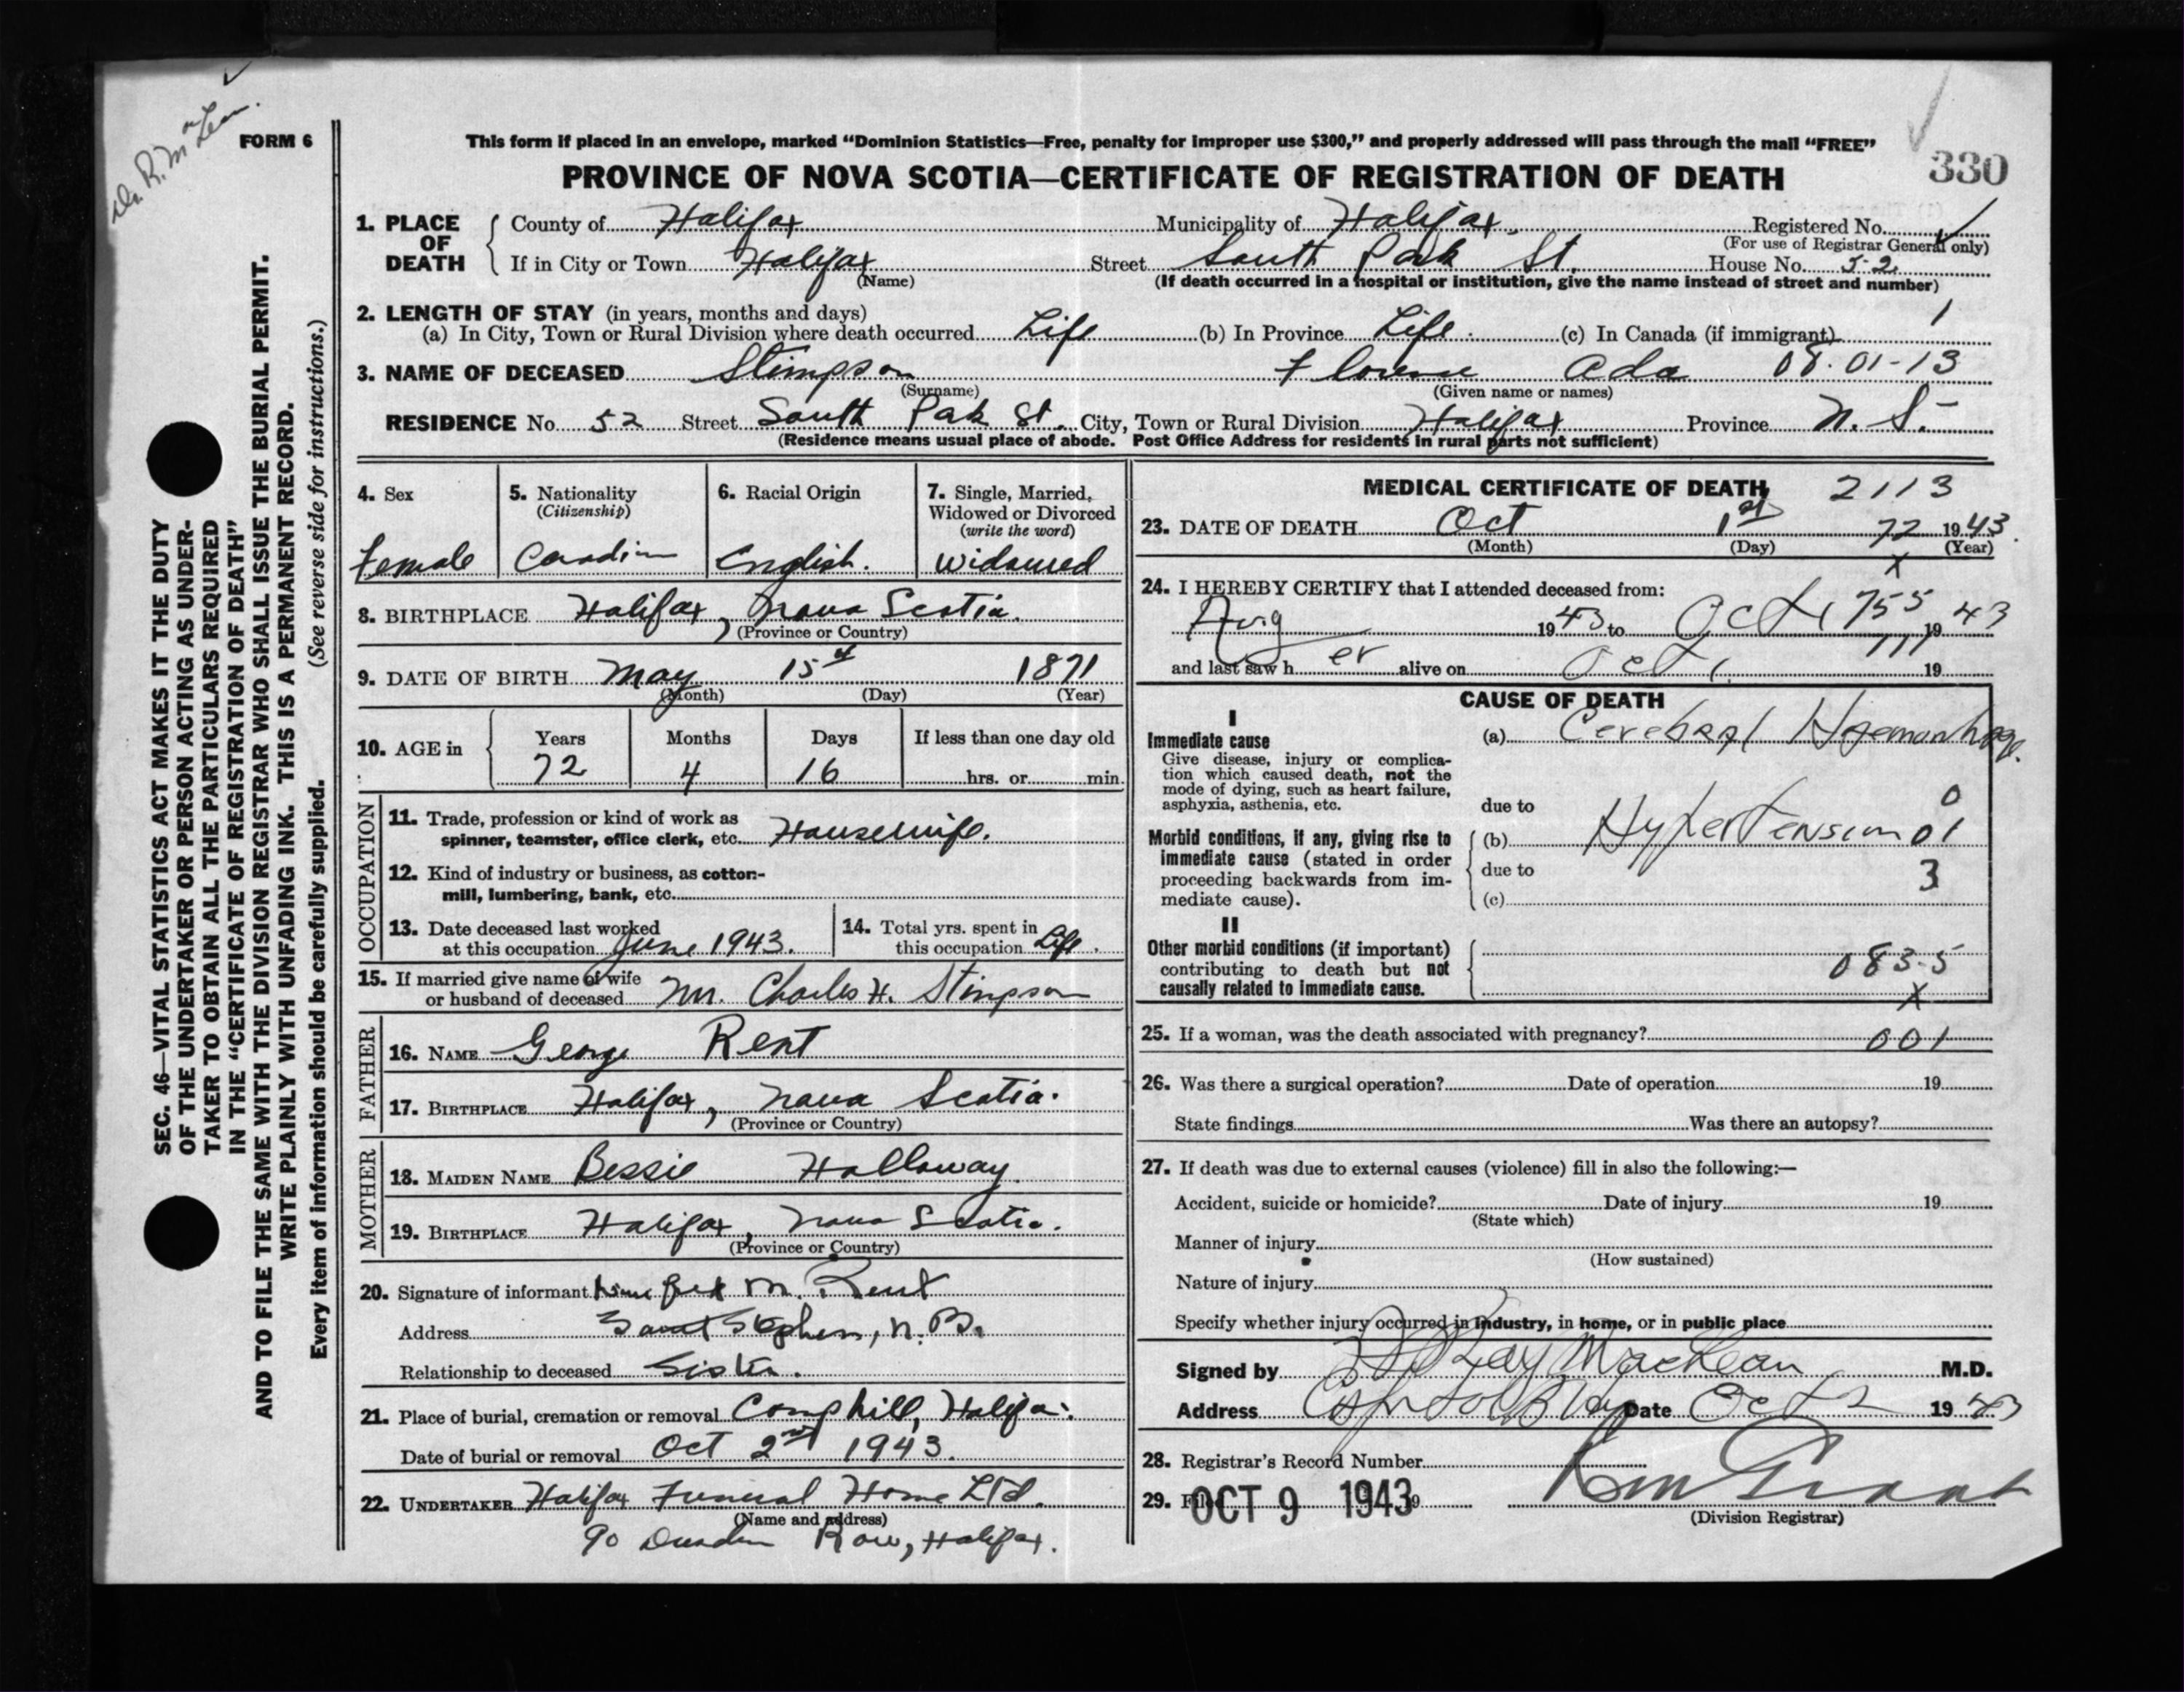 Dr. R. McLean.
FORM 6
This form if placed in an envelope, marked "Dominion Statistics—Free, penalty for improper use $300," and properly addressed will pass through the mail "FREE"
PROVINCE OF NOVA SCOTIA—CERTIFICATE OF REGISTRATION OF DEATH
330
SEC. 46—VITAL STATISTICS ACT MAKES IT THE DUTY
OF THE UNDERTAKER OR PERSON ACTING AS UNDER-
TAKER TO OBTAIN ALL THE PARTICULARS REQUIRED
IN THE "CERTIFICATE OF REGISTRATION OF DEATH"
AND TO FILE THE SAME WITH THE DIVISION REGISTRAR WHO SHALL ISSUE THE BURIAL PERMIT.
WRITE PLAINLY WITH UNFADING INK. THIS IS A PERMANENT RECORD.
Every item of information should be carefully supplied. (See reverse side for instructions.)
1. PLACE OF DEATH County of Halifax Municipality of Halifax. Registered No.
(For use of Registrar General only)
If in City or Town Halifax Street South Park St. House No. 52
(Name) (If death occurred in a hospital or institution, give the name instead of street and number)
2. LENGTH OF STAY (in years, months and days)
(a) In City, Town or Rural Division where death occurred Life (b) In Province Life. (c) In Canada (if immigrant) 1
3. NAME OF DECEASED Stimpson Florence Ada 08.01-13
(Surname) (Given name or names)
RESIDENCE No. 52 Street South Park St. City, Town or Rural Division Halifax Province N. S.
(Residence means usual place of abode. Post Office Address for residents in rural parts not sufficient)
4. Sex 5. Nationality 6. Racial Origin 7. Single, Married,
(Citizenship) Widowed or Divorced
(write the word)
Female Canadian English. Widowed
8. BIRTHPLACE Halifax, Nova Scotia.
(Province or Country)
9. DATE OF BIRTH May 15th 1871
(Month) (Day) (Year)
10. AGE in Years Months Days If less than one day old
72 4 16 hrs. or min.
OCCUPATION
11. Trade, profession or kind of work as
spinner, teamster, office clerk, etc. Housewife.
12. Kind of industry or business, as cotton-
mill, lumbering, bank, etc.
13. Date deceased last worked 14. Total yrs. spent in
at this occupation June 1943. this occupation Life.
15. If married give name of wife
or husband of deceased Mr. Charles H. Stimpson
FATHER
16. NAME George Rent
17. BIRTHPLACE Halifax, Nova Scotia.
(Province or Country)
MOTHER
18. MAIDEN NAME Bessie Holloway.
19. BIRTHPLACE Halifax, Nova Scotia.
(Province or Country)
20. Signature of informant M. Rent
Address Saint Stephen, N. B.
Relationship to deceased Sister.
21. Place of burial, cremation or removal Camphill, Halifax.
Date of burial or removal Oct 2nd 1943.
22. UNDERTAKER Halifax Funeral Home Ltd.
(Name and address)
90 Row, Halifax.
MEDICAL CERTIFICATE OF DEATH 2113
23. DATE OF DEATH Oct 1st 72 1943.
(Month) (Day) (Year)
X
24. I HEREBY CERTIFY that I attended deceased from:
Aug 1943 to Oct 1 755 1943
111
and last saw her alive on Oct 1, 19
CAUSE OF DEATH
I
Immediate cause (a) Cerebral Haemorrhage.
Give disease, injury or complica-
tion which caused death, not the
mode of dying, such as heart failure,
asphyxia, asthenia, etc. due to 0
Morbid conditions, if any, giving rise to (b) Hypertension 01
immediate cause (stated in order
proceeding backwards from im- due to 3
mediate cause). (c)
II
Other morbid conditions (if important)
contributing to death but not 083-5
causally related to immediate cause. X
25. If a woman, was the death associated with pregnancy? 001
26. Was there a surgical operation? Date of operation 19
State findings Was there an autopsy?
27. If death was due to external causes (violence) fill in also the following:—
Accident, suicide or homicide? Date of injury 19
(State which)
Manner of injury
(How sustained)
Nature of injury
Specify whether injury occurred in industry, in home, or in public place
Signed by Ray MacLean M.D.
Address Date Oct 2 1943
28. Registrar's Record Number
29. OCT 9 1943
(Division Registrar)